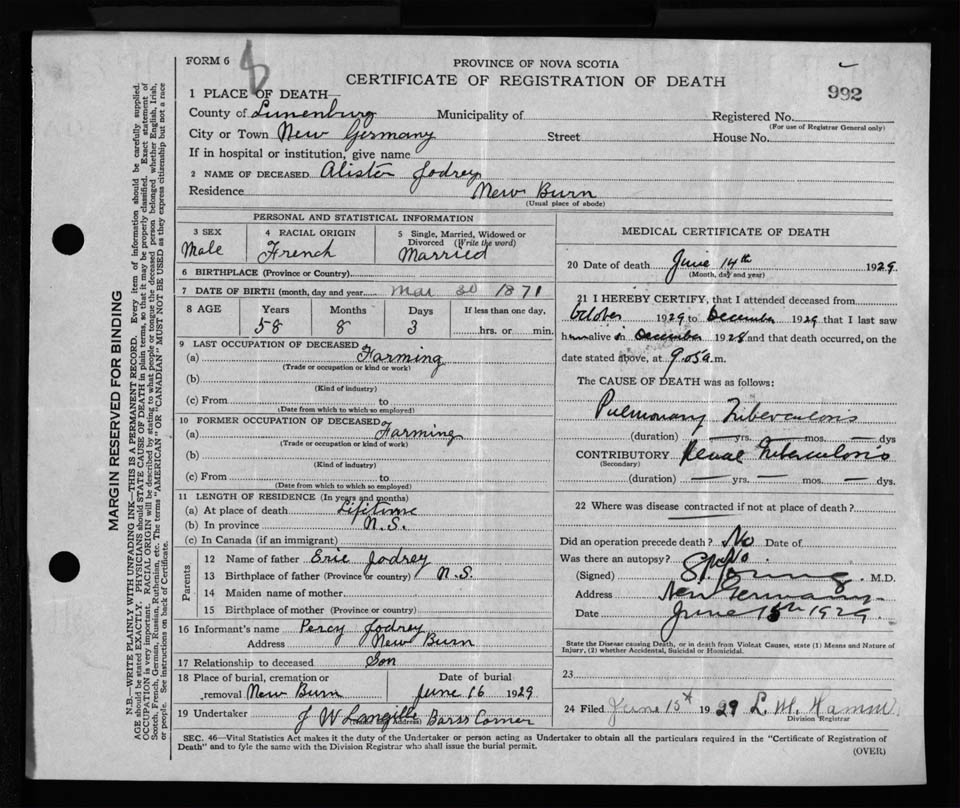 FORM 6
8
PROVINCE OF NOVA SCOTIA
CERTIFICATE OF REGISTRATION OF DEATH
992
1 PLACE OF DEATH—
County of Lunenburg Municipality of Registered No.
(For use of Registrar General only)
City or Town New Germany Street House No.
If in hospital or institution, give name
2 NAME OF DECEASED Alister Jodrey
Residence New Burn
(Usual place of abode)
PERSONAL AND STATISTICAL INFORMATION
3 SEX 4 RACIAL ORIGIN 5 Single, Married, Widowed or Divorced (Write the word)
Male French Married
6 BIRTHPLACE (Province or Country)
7 DATE OF BIRTH (month, day and year) Mar 30 1871
8 AGE Years Months Days If less than one day,
58 8 3 hrs. or min.
9 LAST OCCUPATION OF DECEASED
(a) Farming
(Trade or occupation or kind or work)
(b)
(Kind of industry)
(c) From to
(Date from which to which so employed)
10 FORMER OCCUPATION OF DECEASED
(a) Farming
(Trade or occupation or kind of work)
(b)
(Kind of industry)
(c) From to
(Date from which to which so employed)
11 LENGTH OF RESIDENCE (In years and months)
(a) At place of death Lifetime
(b) In province N.S.
(c) In Canada (if an immigrant)
Parents
12 Name of father Eric Jodrey
13 Birthplace of father (Province or country) N.S.
14 Maiden name of mother
15 Birthplace of mother (Province or country)
16 Informant's name Percy Jodrey
Address New Burn
17 Relationship to deceased Son
18 Place of burial, cremation or removal New Burn
Date of burial
June 16 1929
19 Undertaker J W Langille Barss Corner
MEDICAL CERTIFICATE OF DEATH
20 Date of death June 14th 1929
(Month, day and year)
21 I HEREBY CERTIFY, that I attended deceased from
October 1929 to December 1929 that I last saw
him alive in December 1928 and that death occurred, on the
date stated above, at 9.05 a.m.
The CAUSE OF DEATH was as follows:
Pulmonary Tuberculosis
(duration) — yrs. — mos. — dys
CONTRIBUTORY Renal Tuberculosis
(Secondary)
(duration) — yrs. — mos. — dys.
22 Where was disease contracted if not at place of death?
Did an operation precede death? No Date of
Was there an autopsy? No
(Signed) M.D.
Address New Germany
Date June 15th 1929
State the Disease causing Death, or in death from Violent Causes, state (1) Means and Nature of
Injury, (2) whether Accidental, Suicidal or Homicidal.
23
24 Filed June 15th 1929 L. M. Hamm
Division Registrar
SEC. 46—Vital Statistics Act makes it the duty of the Undertaker or person acting as Undertaker to obtain all the particulars required in the "Certificate of Registration of
Death" and to fyle the same with the Division Registrar who shall issue the burial permit.
(OVER)
MARGIN RESERVED FOR BINDING
N.B.—WRITE PLAINLY WITH UNFADING INK—THIS IS A PERMANENT RECORD. Every item of information should be carefully supplied.
AGE should be stated EXACTLY. PHYSICIANS should STATE CAUSE OF DEATH in plain terms, so that it may be properly classified. Exact statement of
OCCUPATION is very important. RACIAL ORIGIN will be described by stating to what people or tongue the deceased person belonged whether English, Irish,
Scotch, French, German, Russian, Ruthenian, etc. The terms "AMERICAN" OR "CANADIAN" MUST NOT BE USED as they express citizenship but not a race
or people. See instructions on back of Certificate.